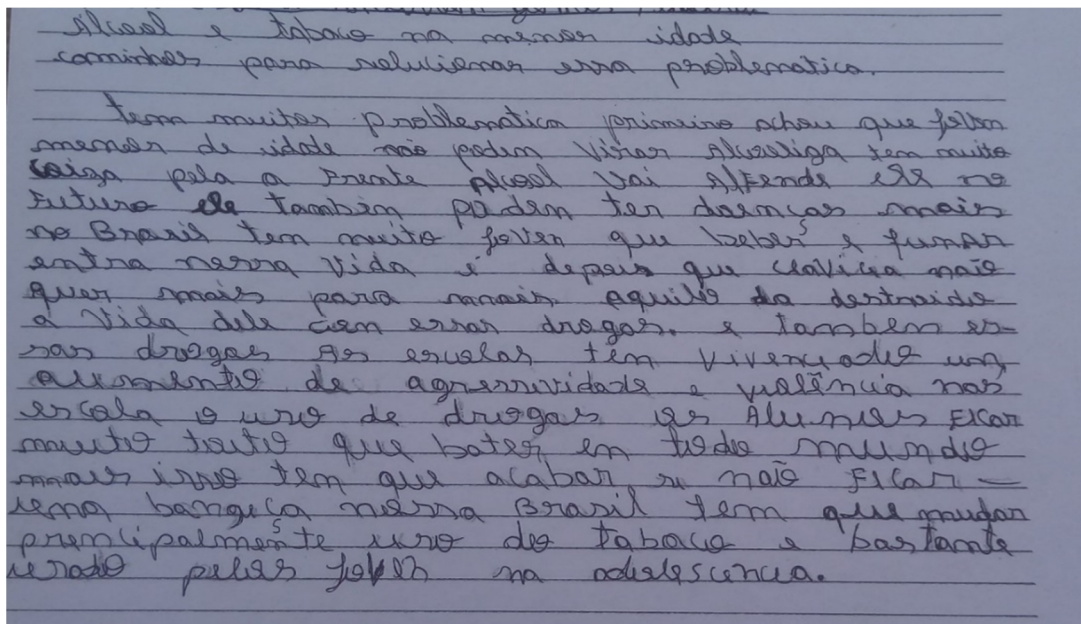 Alcool e tabaco na menor idade
caminhos para solucionar essa problematica.
tem muitas problematica primeiro achou que joven
menor de idade não podem virar tem muito
pela a Frente Alcool Vai ele no
Futuro ele tambin podem ter doenças mais
no Brasil tem muito joven que beber e fumar
entra nessa vida e depois que não
quer mais para mais aquilo da destruido
a vida dele com essas drogas. e tambem es-
sas drogas As escolas têm vivenciado um
aumento de agressividade e violência nas
escola o uso de drogas os Alunos Ficar
muito que bater en todo mundo
mais isso tem que acabar se não Ficar
uma nessa Brasil tem que mudar
prencipalmente uso do tabaco e bastante
usado pelos joven na adolescencia.